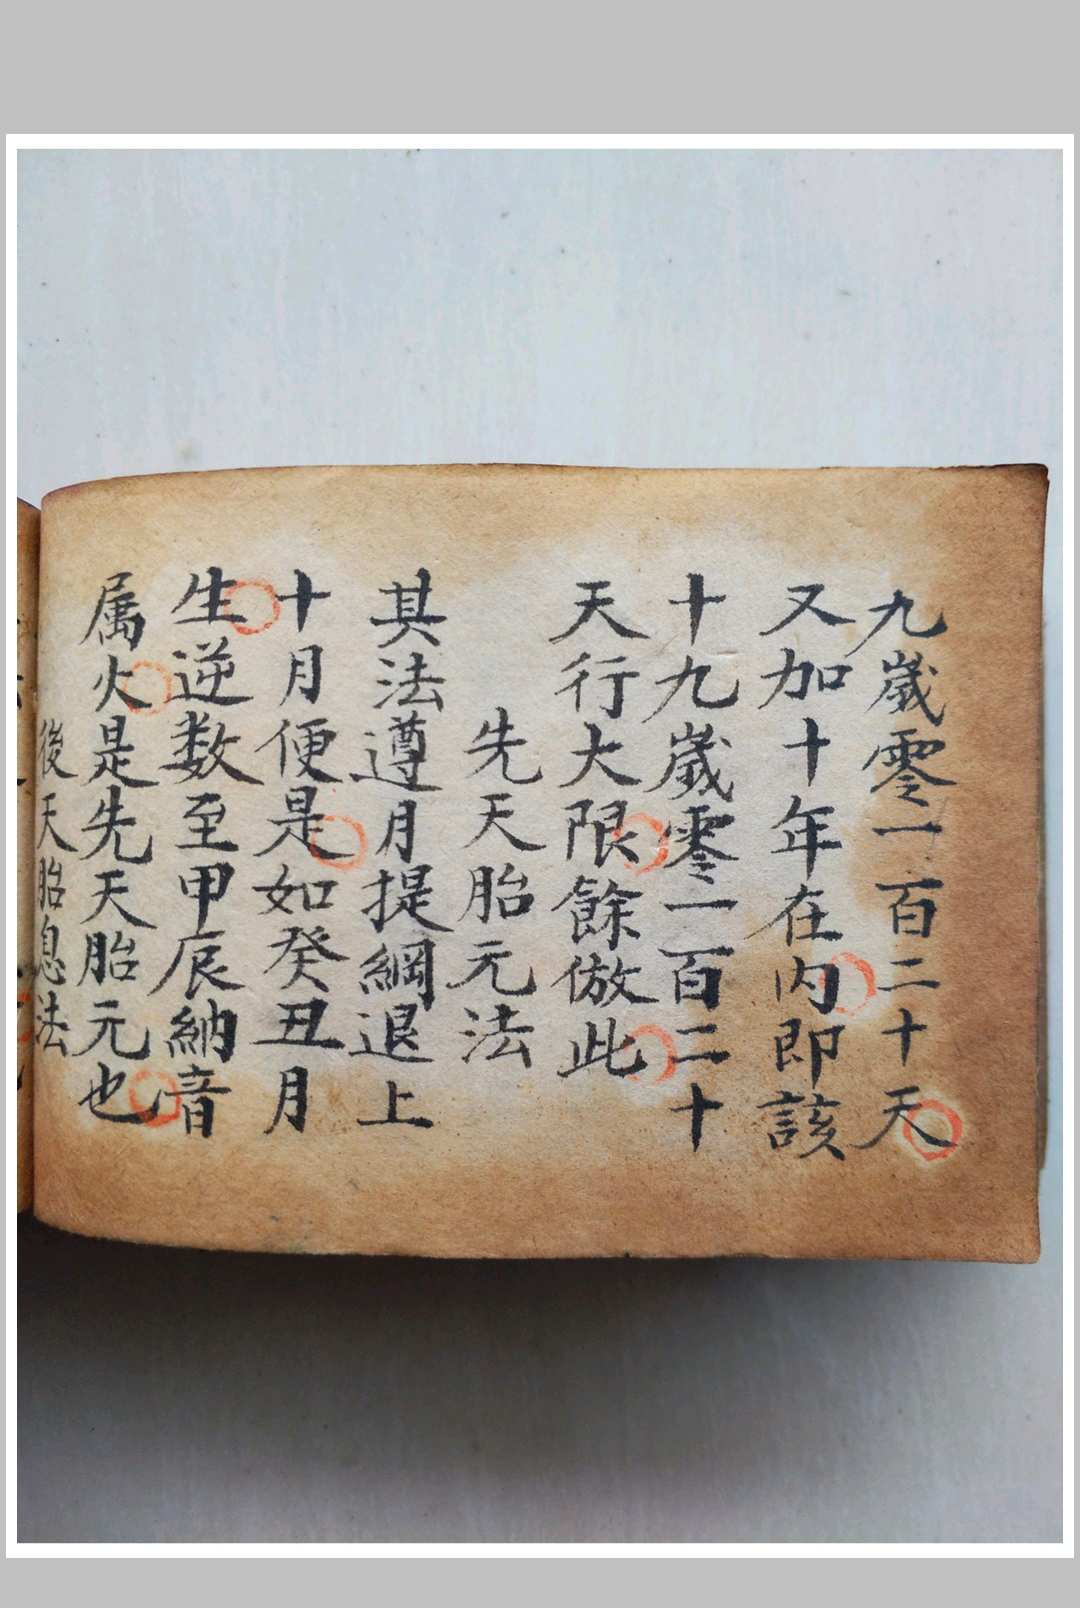 九歲零一百二十天
又加十年在内即該
十九歲零一百二十
天行大限餘倣此
先天胎元法
其法遵月提綱退上
十月便是如癸丑月
生逆数至甲辰納音
属火是先天胎元也
後天胎息法